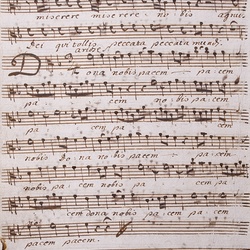 miserere miserere nobis agnus
dei qui tollis peccata peccata mundi
Dona nobis pacem pacem
pa cem nobis pa
cem pa cem
nobis dona nobis pacem pa cem
nobis pa cem nobis pa
cem dona nobis pa cem pa cem
pacem pacem.